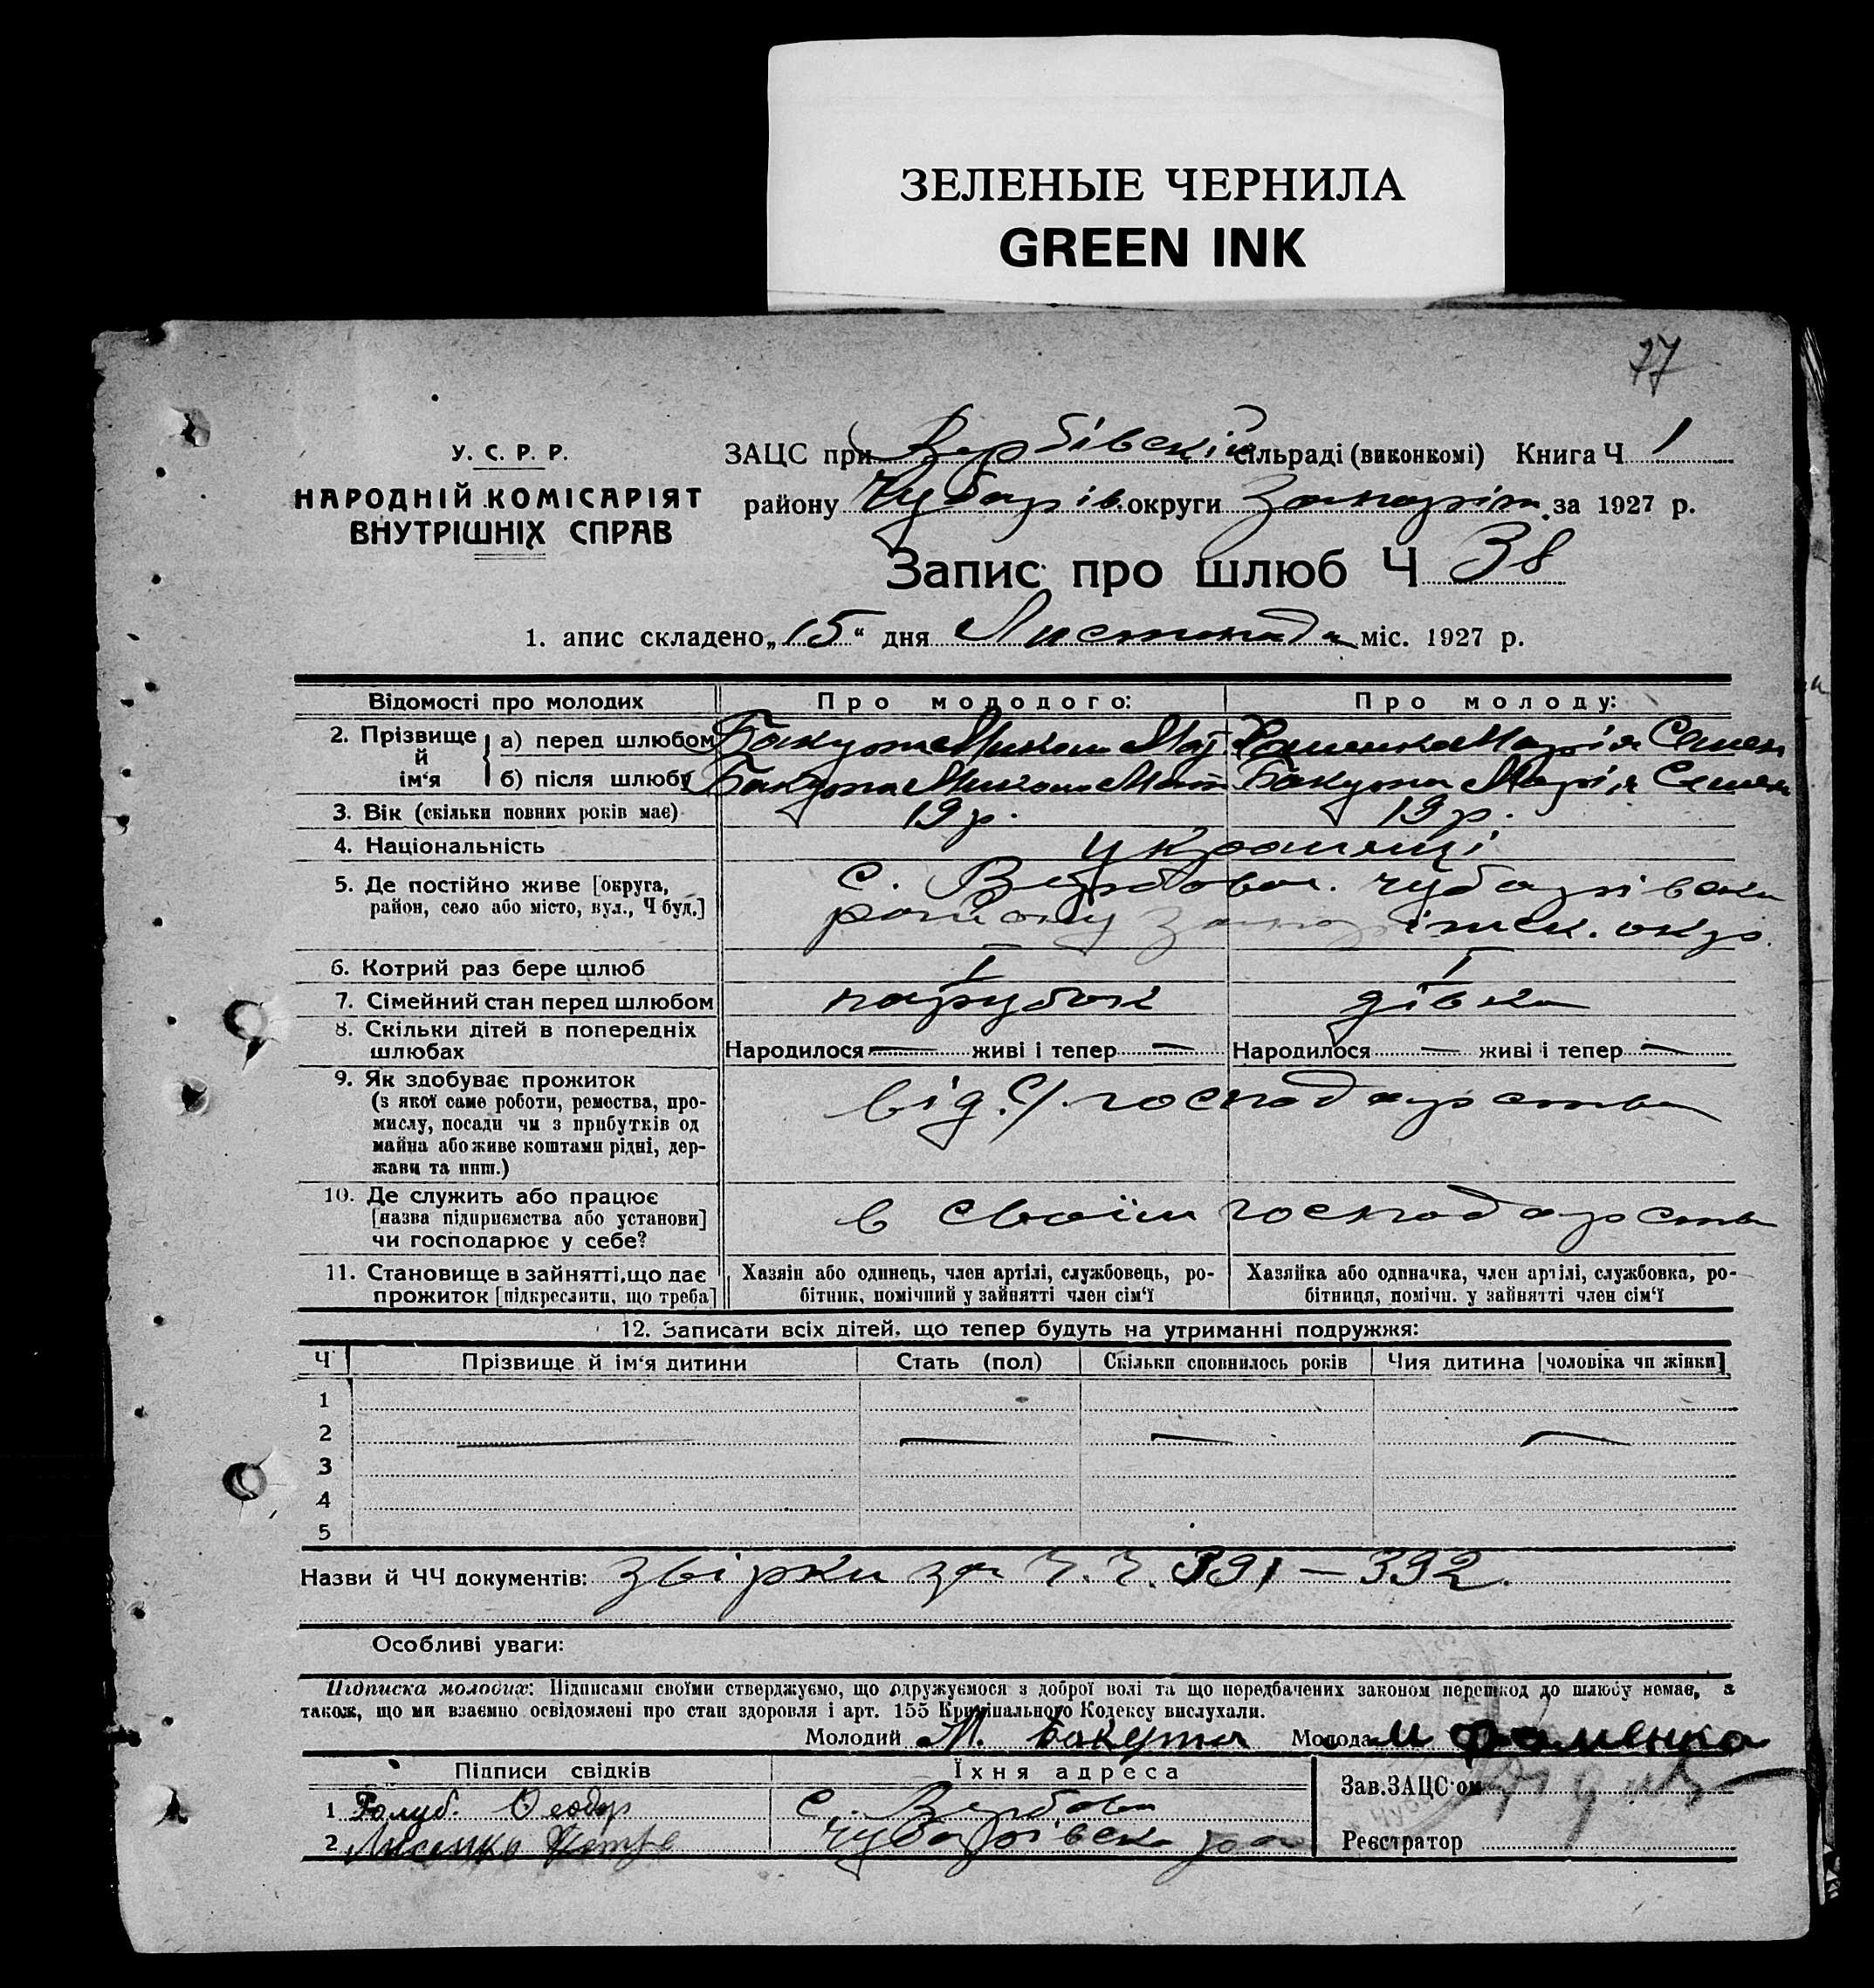 ЗЕЛЕНЫЕ ЧЕРНИЛА
GREEN INK
77
У. С. Р. Р.
НАРОДНІЙ КОМІСАРІЯТ
ВНУТРІШНІХ СПРАВ
ЗАЦС при Вербівскій сільраді (виконкомі) Книга Ч 1
району Чубарів. округи Запоріж. за 1927 р.
Запис про шлюб Ч 38
1. апис складено „15“ дня Листопада міс. 1927 р.
Відомості про молодих Про молодого: Про молоду:
2. Прізвище й ім‘я а) перед шлюбом Бакута Микола Мат Хоменко Марія Семен
б) після шлюбу Бакута Микола Мат Бакута Марія Семен
3. Вік (скільки повних років має) 19 р. 19 р.
4. Національність українці
5. Де постійно живе [округа, район, село або місто, вул., Ч буд.] с. Вербова. Чубарівськ
району Запоріжск. окр.
6. Котрий раз бере шлюб I I
7. Сімейний стан перед шлюбом парубок дівка
8. Скільки дітей в попередніх шлюбах Народилося — живі і тепер — Народилося — живі і тепер —
9. Як здобуває прожиток від С/. господарства
(з якої саме роботи, ремества, про-
мислу, посади чи з прибутків од
майна або живе коштами рідні, дер-
жави та инш.)
10. Де служить або працює
[назва підприємства або установи] в своїм господарстві
чи господарює у себе?
11. Становище в зайнятті, що дає прожиток [підкреслити, що треба] Хазяін або одинець, член артілі, службовець, ро- Хазяйка або одиначка, член артілі, службовка, ро-
бітник, помічний у зайнятті член сім‘ї бітниця, помічн. у зайнятті член сім‘ї
12. Записати всіх дітей, що тепер будуть на утриманні подружжя:
Ч Прізвище й ім‘я дитини Стать (пол) Скільки сповнилось років Чия дитина [чоловіка чи жінки]
1
2 — — — —
3
4
5
Назви й ЧЧ документів: збірки за Ч.Ч. 391 — 392.
Особливі уваги:
Підписка молодих: Підписами своїми стверджуємо, що одружуємося з доброї волі та що передбачених законом перешкод до шлюбу немає, а
також, що ми взаємно освідомлені про стан здоровля і арт. 155 Кримінального Кодексу вислухали.
Молодий М. Бакута Молода М Фоменко
Підписи свідків Їхня адреса
Зав. ЗАЦС‘ом
1 Голуб. Феодор с. Вербова
2 Лисенко Петро Чубарівськ ра
Реєстратор